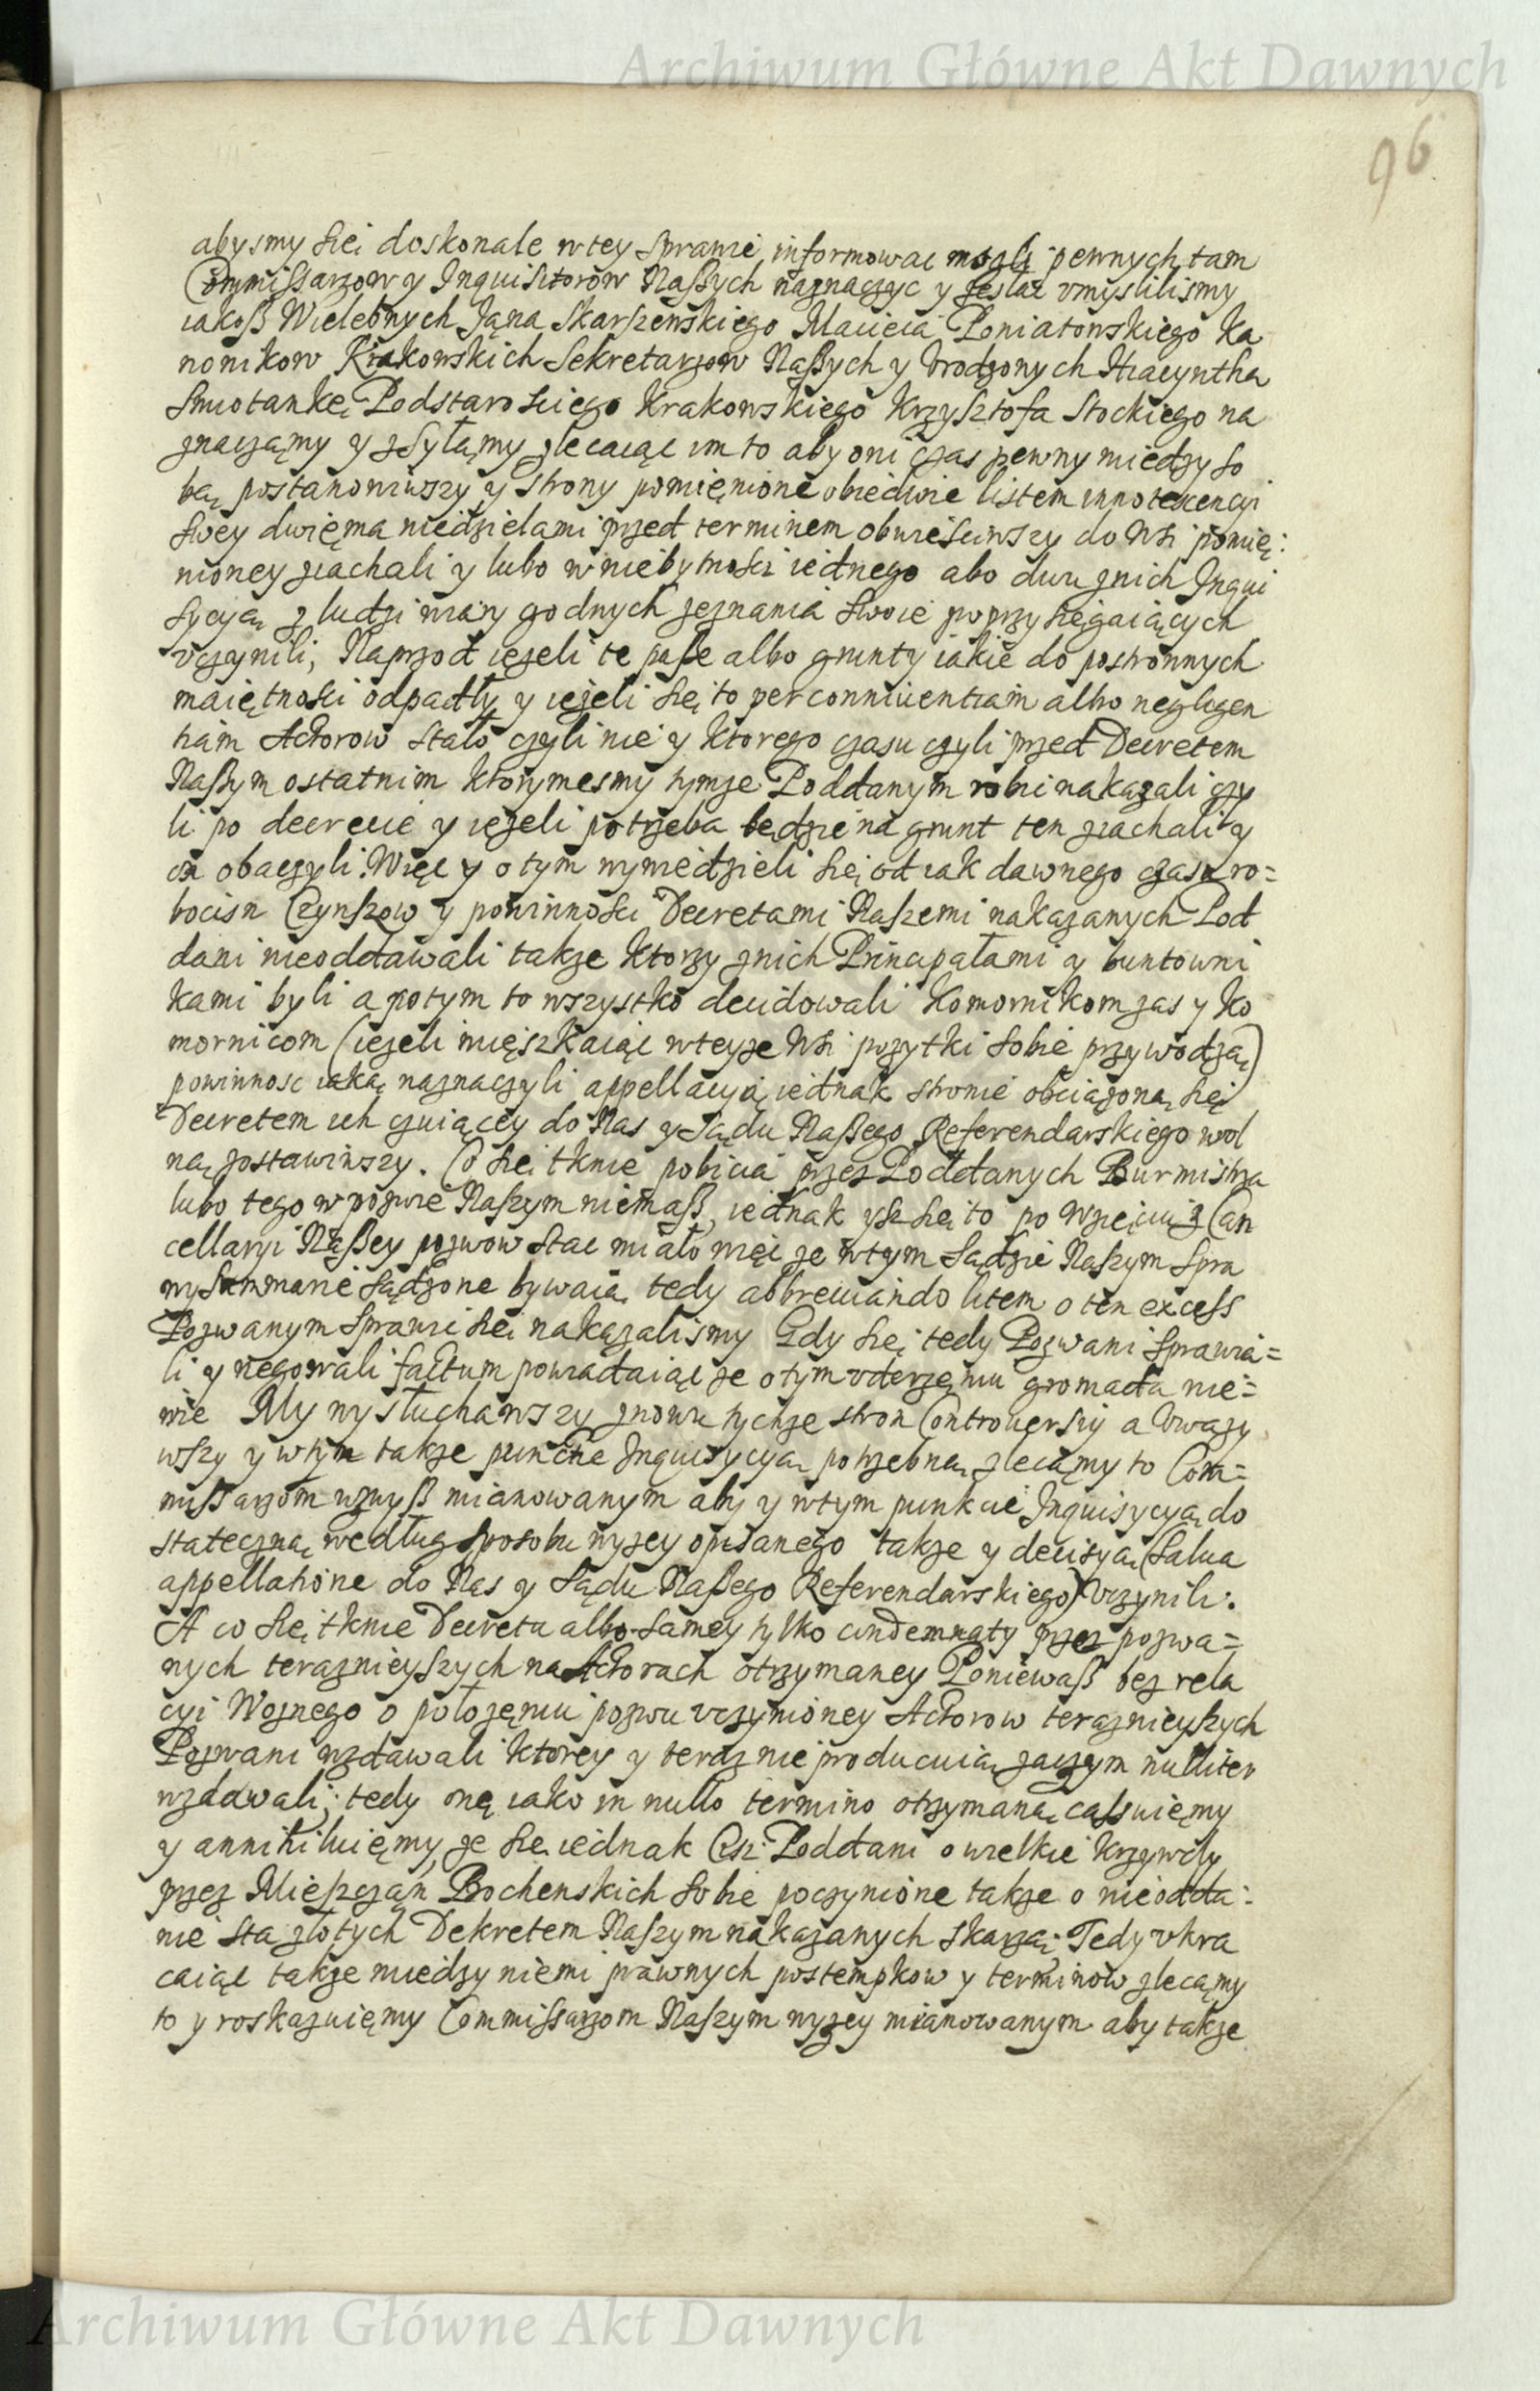 Archiwum Główne Akt Dawnych
96.
abysmy się doskonale w tey sprawie informowac mogli pewnych tam
Commissarzow y Inquisitorow Naszych naznaczyc y zesłac vmyslilismy
iakoß Wielebnych Jana Skarszewskiego Macieia Poniatowskiego Ka
nonikow Krakowskich Sekretarzow Naszych y Vrodzonych Hiacyntha
Smiotankę Podstarosciego Krakowskiego Krzysztofa Stockiego na
znaczamy y zsyłamy zlecaiąc im to aby oni czas pewny miedzy so
bą postanowiwszy y strony pomięnione obiedwie listem innotescencyi
swey dwięma niedzielami przed terminem obwiesciwszy do Wsi pomię:
nioney ziachali y lubo w niebytnosci iednego abo dwu znich Inqui
sycyą z ludzi wiary godnych zeznania swoie poprzysięgaiących
vczynili, Naprzod iezeli te pasze albo grunty iakie do postronnych
maiętnosci odpadły y iezeli się to per conniventiam albo negligen
tiam Actorow stało czyli nie y ktorego czasu czyli przed Decretem
Naszym ostatnim ktorymesmy tymze Poddanym robic nakazali czy
li po decrecie y iezeli potrzeba będzie na grunt ten ziachali y
on obaczyli. Więc y o tym wywiedzieli się od iak dawnego czasu ro=
bocizn Czynszow y powinnosci Decretami Naszemi nakazanych Pod
dani nieoddawali takze ktorzy znich Principałami y buntowni
kami byli a potym to wszystko decidowali Komornikom zas y Ko
mornicom (iezeli mięszkaiąc w teyze Wsi pozytki sobie przywodzą)
powinnosc iaką naznaczyli appellacyą iednak stronie obciązoną się
Decretem ich czuiącey do Nas y Sądu Naszego Referendarskiego wol
ną zostawiwszy. Co się tknie pobicia przez Poddanych Burmistrza
lubo tego w pozwie Naszym niemasz, iednak ysz się to po wzięciu z Can
cellaryi Naszey pozwow stac miało więc ze w tym Sądzie Naszym spra
wy summarie sądzone bywaią tedy abbreviando litem o ten excess
Pozwanym sprawic się nakazalismy Gdy się tedy Pozwani sprawia=
li y negowali factum powiadaiąc ze o tym vderzęniu gromada nie=
wie My wysłuchawszy znowu tychze stron Controversiy a Vwazy
wszy y w tym takze punckcie Inquisycyą potrzebną zlecamy to Com=
missarzom wzwysz mianowanym aby y w tym punkcie Inquisycyą do
stateczną według sposobu wyzey opisanego takze y decisyą (salua
appellatione do Nas y Sądu Naszego Referendarskiego) vczynili.
A co się tknie Decretu albo samey tylko condemnaty przez pozwa=
nych teraznieyszych na Actorach otrzymaney Poniewasz bez rela
cyi Woznego o połozęniu pozwu vczynioney Actorow terazniejszych
Pozwani wzdawali ktorey y teraz nie producuią zaczym nulliter
wzdawali; tedy onę iako in nullo termino otrzymaną cassuięmy
y annihiluięmy ze się iednak Ciz: Poddani o wielkie krzywdy
przez Mieszczan Bochenskich sobie poczynione takze o nieodda:
nie sta złotych Dekretem Naszym nakazanych skarzą; Tedy vkra
caiąc takze miedzy niemi prawnych postempkow y terminow zlecamy
to y roskazuięmy Commissarzom Naszym wyzey mianowanym aby takze
Archiwum Główne Akt Dawnych